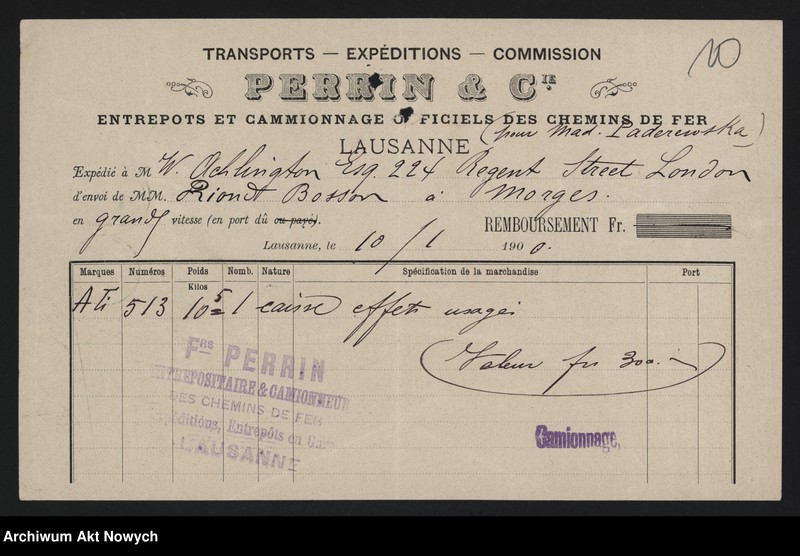 10
TRANSPORTS — EXPÉDITIONS — COMMISSION
PERRIN & CIE
ENTREPOTS ET CAMMIONNAGE OFFICIELS DES CHEMINS DE FER
LAUSANNE (pour Mad. Paderewska)
Expédié à M W. Adlington Esq. 224 Regent Street London
d'envoi de MM. Riond Bosson à Morges.
en grande vitesse (en port dû ou payé). REMBOURSEMENT Fr.
Lausanne, le 10/1 1900.
Marques Numéros Poids Nomb. Nature Spécification de la marchandise Port
Kilos
513 105 1 caisse effets usagés
(Valeur frs 300.-)
Frs PERRIN
ENTREPOSITAIRE & CAMIONNEUR
DES CHEMINS DE FER
Expéditions, Entrepôts en Gare
LAUSANNE
Camionnage,
Archiwum Akt Nowych